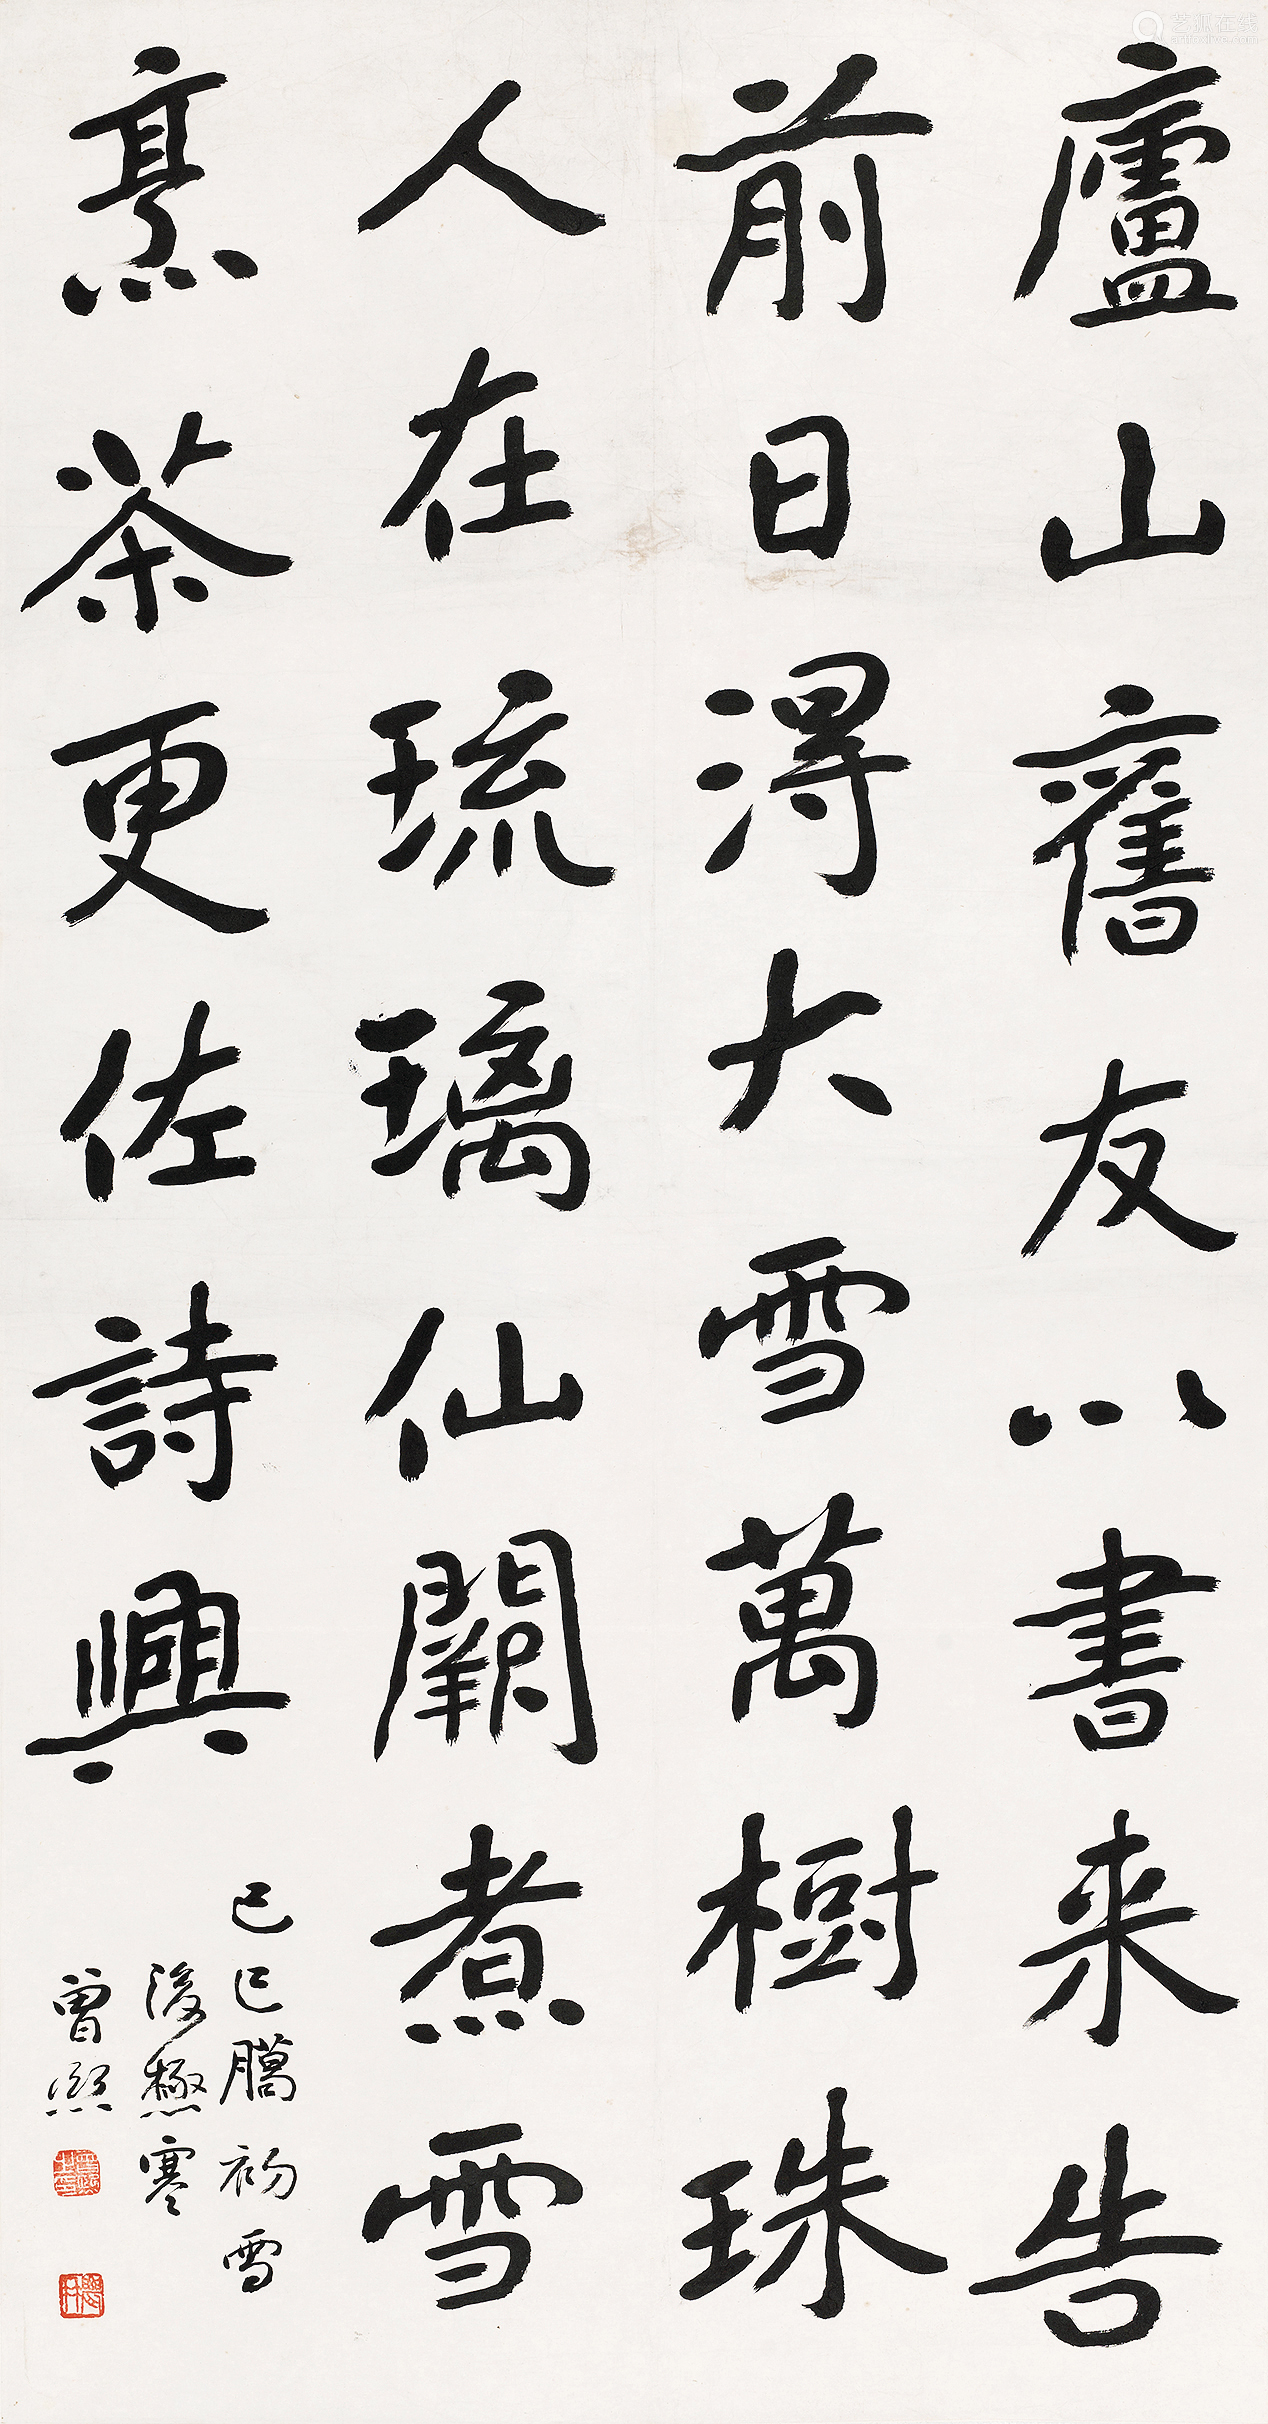 廬山舊友以書来告
前日得大雪萬樹珠
人在琉璃仙闕煮雪
烹茶更佐詩興
己巳臈初雪
後極寒
曾熙
艺狐在线